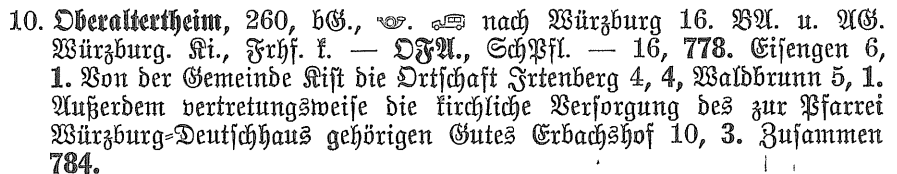 10. Oberaltertheim, 260, bG., 📯. 🚌 nach Würzburg 16. BA. u. AG.
Würzburg. Ki., Frhf. k. — OFA., SchPfl. — 16, 778. Eisengen 6,
1. Von der Gemeinde Kist die Ortschaft Irtenberg 4, 4, Waldbrunn 5, 1.
Außerdem vertretungsweise die kirchliche Versorgung des zur Pfarrei
Würzburg-Deutschhaus gehörigen Gutes Erbachshof 10, 3. Zusammen
784.